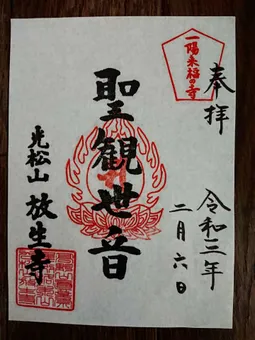 奉拝
一陽来福の寺
令和三年
二月六日
聖観世音
光松山 放生寺